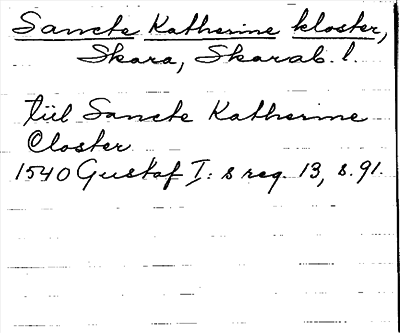 Sancte Katherine kloster,
Skara, Skarab. l.
tiil Sancte Katherine
Closter
1540 Gustaf I:s reg. 13, s. 91.